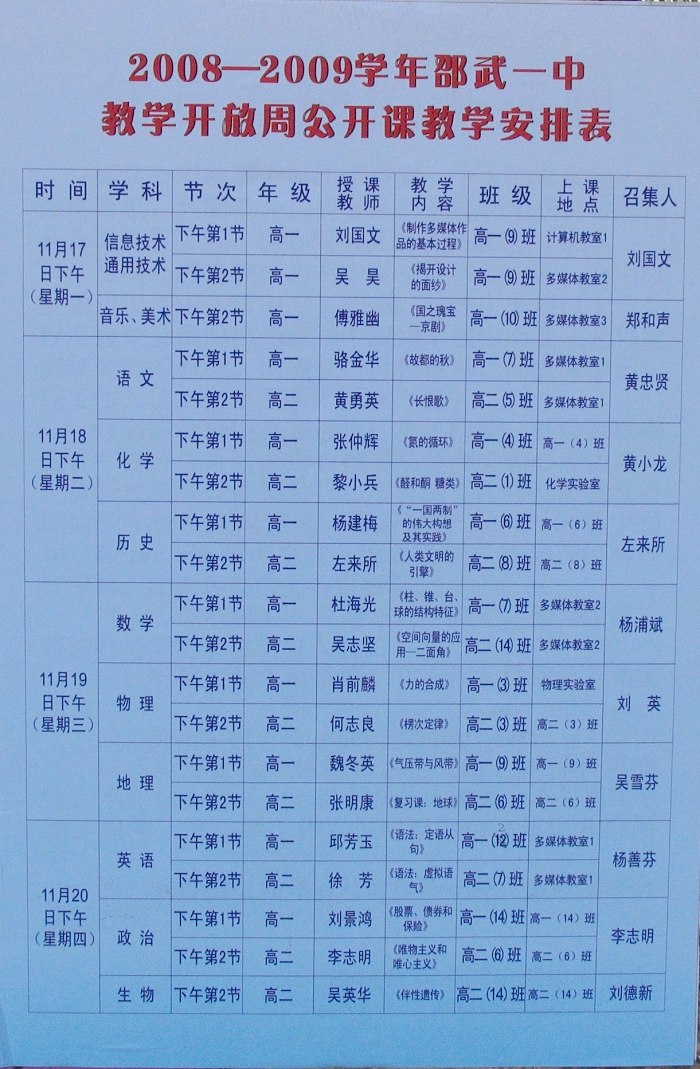 2008—2009学年邵武一中
教学开放周公开课教学安排表
时间 学科 节次 年级 授课教师 教学内容 班级 上课地点 召集人
11月17日下午（星期一） 信息技术 通用技术 下午第1节 高一 刘国文 《制作多媒体作品的基本过程》 高一(9)班 计算机教室1 刘国文
下午第2节 高一 吴昊 《揭开设计的面纱》 高一(9)班 多媒体教室2
音乐、美术 下午第2节 高一 傅雅幽 《国之瑰宝—京剧》 高一(10)班 多媒体教室3 郑和声
11月18日下午（星期二） 语文 下午第1节 高一 骆金华 《故都的秋》 高一(7)班 多媒体教室1 黄忠贤
下午第2节 高二 黄勇英 《长恨歌》 高二(5)班 多媒体教室1
化学 下午第1节 高一 张仲辉 《氮的循环》 高一(4)班 高一（4）班 黄小龙
下午第2节 高二 黎小兵 《醛和酮 糖类》 高二(1)班 化学实验室
历史 下午第1节 高一 杨建梅 《“一国两制”的伟大构想及其实践》 高一(6)班 高一（6）班 左来所
下午第2节 高二 左来所 《人类文明的引擎》 高二(8)班 高二（8）班
11月19日下午（星期三） 数学 下午第1节 高一 杜海光 《柱、锥、台、球的结构特征》 高一(7)班 多媒体教室2 杨浦斌
下午第2节 高二 吴志坚 《空间向量的应用—二面角》 高二(14)班 多媒体教室2
物理 下午第1节 高一 肖前麟 《力的合成》 高一(3)班 物理实验室 刘英
下午第2节 高二 何志良 《楞次定律》 高二(3)班 高二（3）班
地理 下午第1节 高一 魏冬英 《气压带与风带》 高一(9)班 高一（9）班 吴雪芬
下午第2节 高二 张明康 《复习课：地球》 高二(6)班 高二（6）班
11月20日下午（星期四） 英语 下午第1节 高一 邱芳玉 《语法：定语从句》 高一(12)班 多媒体教室1 杨善芬
下午第2节 高二 徐芳 《语法：虚拟语气》 高二(7)班 多媒体教室1
政治 下午第1节 高一 刘景鸿 《股票、债券和保险》 高一(14)班 高一（14）班 李志明
下午第2节 高二 李志明 《唯物主义和唯心主义》 高二(6)班 高二（6）班
生物 下午第2节 高二 吴英华 《伴性遗传》 高二(14)班 高二（14）班 刘德新